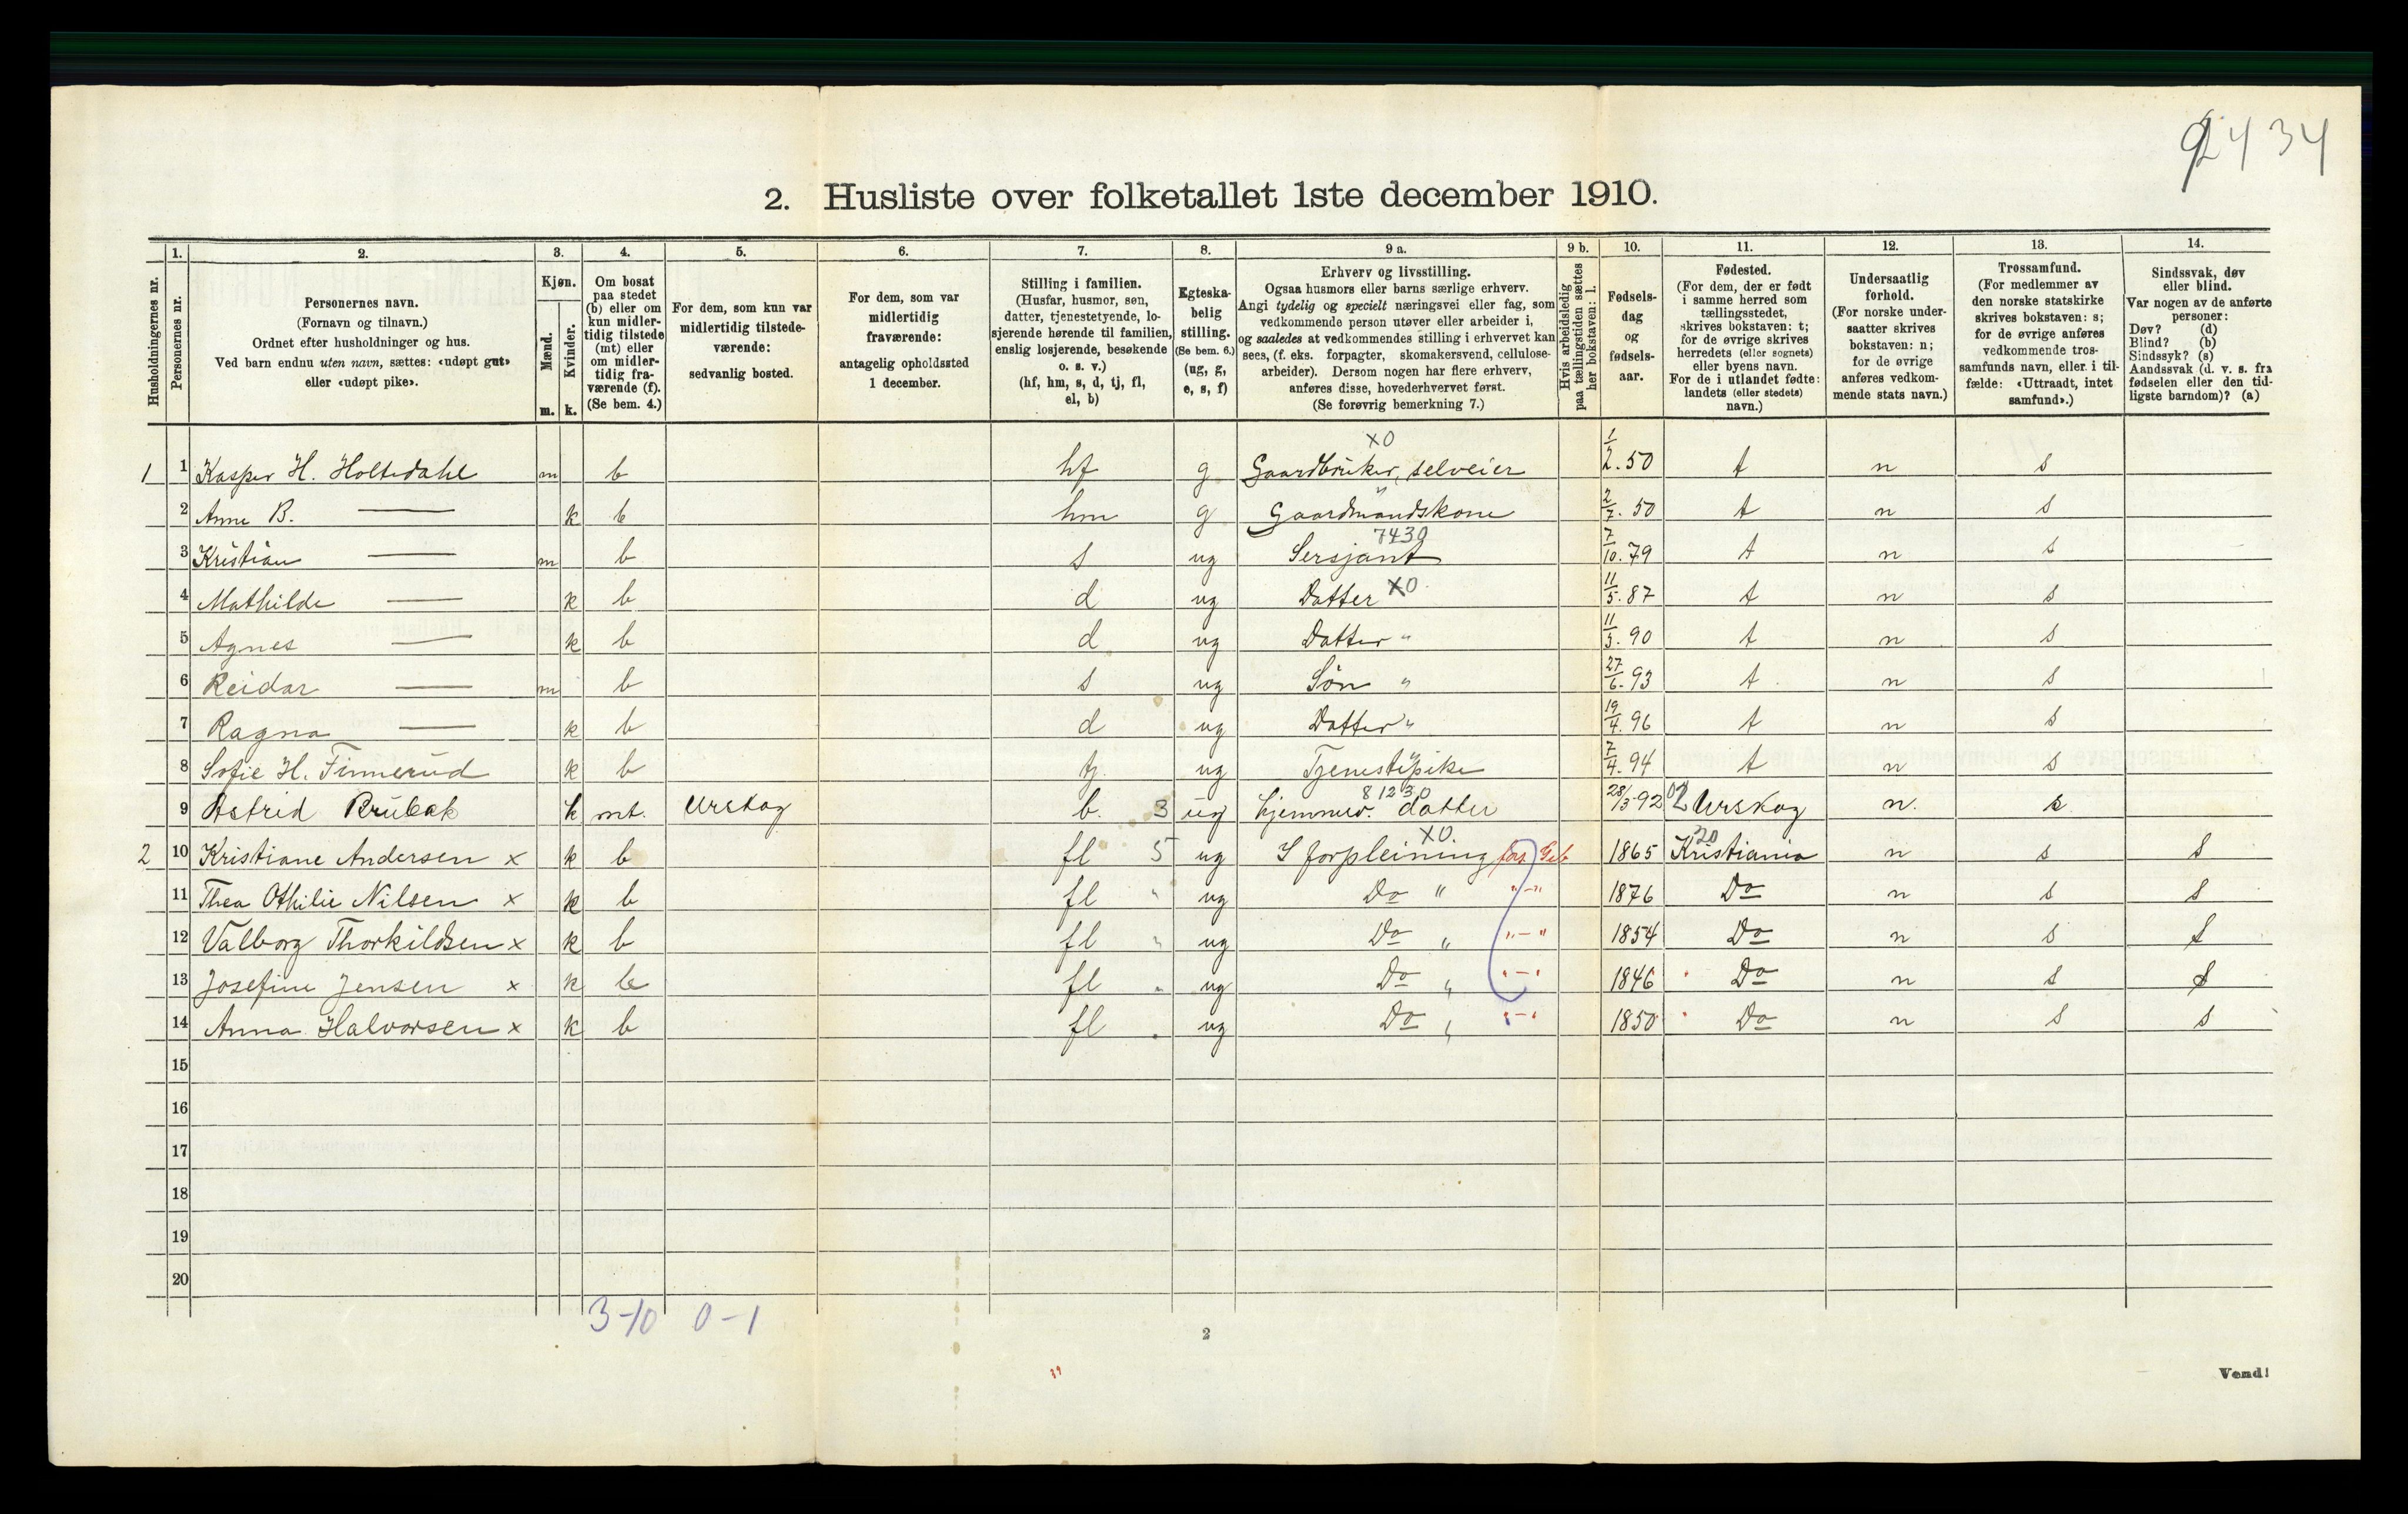 92434
2. Husliste over folketallet 1ste december 1910.
Husholdningernes nr.
1. Personernes nr.
2. Personernes navn. (Fornavn og tilnavn.) Ordnet efter husholdninger og hus. Ved barn endnu uten navn, sættes: «udøpt gut» eller «udøpt pike».
3. Kjøn. Mænd. m. Kvinder. k.
4. Om bosat paa stedet (b) eller om kun midlertidig tilstede (mt) eller om midlertidig fraværende (f). (Se bem. 4.)
5. For dem, som kun var midlertidig tilstedeværende: sedvanlig bosted.
6. For dem, som var midlertidig fraværende: antagelig opholdssted 1 december.
7. Stilling i familien. (Husfar, husmor, søn, datter, tjenestetyende, losjerende hørende til familien, enslig losjerende, besøkende o. s. v.) (hf, hm, s, d, tj, fl, el, b)
8. Egteskabelig stilling. (Se bem. 6.) (ug, g, e, s, f)
9 a. Erhverv og livsstilling. Ogsaa husmors eller barns særlige erhverv. Angi tydelig og specielt næringsvei eller fag, som vedkommende person utøver eller arbeider i, og saaledes at vedkommendes stilling i erhvervet kan sees, (f. eks. forpagter, skomakersvend, cellulosearbeider). Dersom nogen har flere erhverv, anføres disse, hovederhvervet først. (Se forøvrig bemerkning 7.)
9 b. Hvis arbeidsledig paa tællingstiden sættes her bokstaven: l.
10. Fødselsdag og fødselsaar.
11. Fødested. (For dem, der er født i samme herred som tællingsstedet, skrives bokstaven: t; for de øvrige skrives herredets (eller sognets) eller byens navn. For de i utlandet fødte: landets (eller stedets) navn.)
12. Undersaatlig forhold. (For norske undersaatter skrives bokstaven: n; for de øvrige anføres vedkommende stats navn.)
13. Trossamfund. (For medlemmer av den norske statskirke skrives bokstaven: s; for de øvrige anføres vedkommende trossamfunds navn, eller i tilfælde: «Uttraadt, intet samfund».)
14. Sindssvak, døv eller blind. Var nogen av de anførte personer: Døv? (d) Blind? (b) Sindssyk? (s) Aandssvak (d. v. s. fra fødselen eller den tidligste barndom)? (a)
1 1 Kasper H. Holtedahl m b hf g Gaardbruker, selveier X0 1/2.50 t n s
2 Anne B. — k b hm g Gaardmandskone " 2/7.50 t n s
3 Kristian — m b s ug Sersjant 7430 7/10.79 t n s
4 Mathilde — k b d ug Datter X0 11/5.87 t n s
5 Agnes — k b d ug Datter " 11/3.90 t n s
6 Reidar — m b s ug Søn " 27/6.93 t n s
7 Ragna — k b d ug Datter " 19/4.96 t n s
8 Sofie H. Finnerud k b tj. ug Tjenestepike 7/4.94 t n s
9 Astrid Brubak k mt. Urskog b. 3 ug hjemmev. datter 81230 28/3-92 02 Urskog n. s.
2 10 Kristiane Andersen x k b fl 5 ug I forpleining X0 forp Geb 1865 20 Kristiania n s s
11 Thea Othilie Nilsen x k b fl " ug Do " "-" 1876 Do n s s
12 Valborg Thorkildsen x k b fl " ug Do " "-" 1854 Do n s s
13 Josefine Jensen x k b fl " ug Do " "-" 1846 Do n s s
14 Anna Halvorsen x k b fl " ug Do " "-" 1850 Do n s s
15
16
17
18
19
20
3-10 0-1
2
Vend!